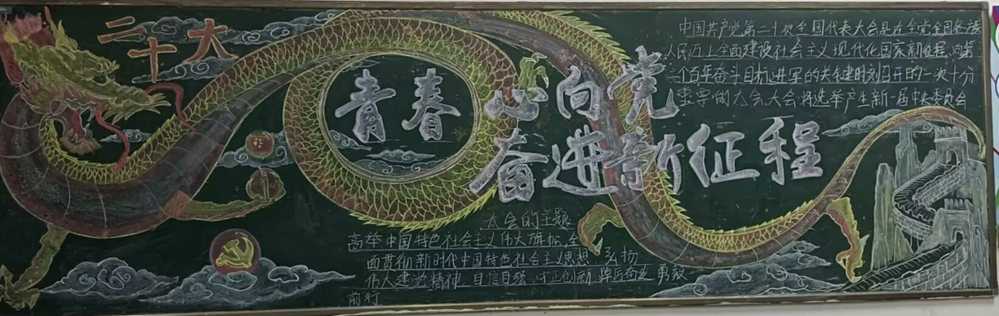 二十大
青春心向党
奋进新征程
中国共产党第二十次全国代表大会是在全党全国各族
人民迈上全面建设社会主义现代化国家新征程、向第
二个百年奋斗目标进军的关键时刻召开的一次十分
重要的大会。大会将选举产生新一届中央委员会
大会的主题
高举中国特色社会主义伟大旗帜,全
面贯彻新时代中国特色社会主义思想,弘扬
伟大建党精神,自信自强、守正创新,踔厉奋发、勇毅
前行